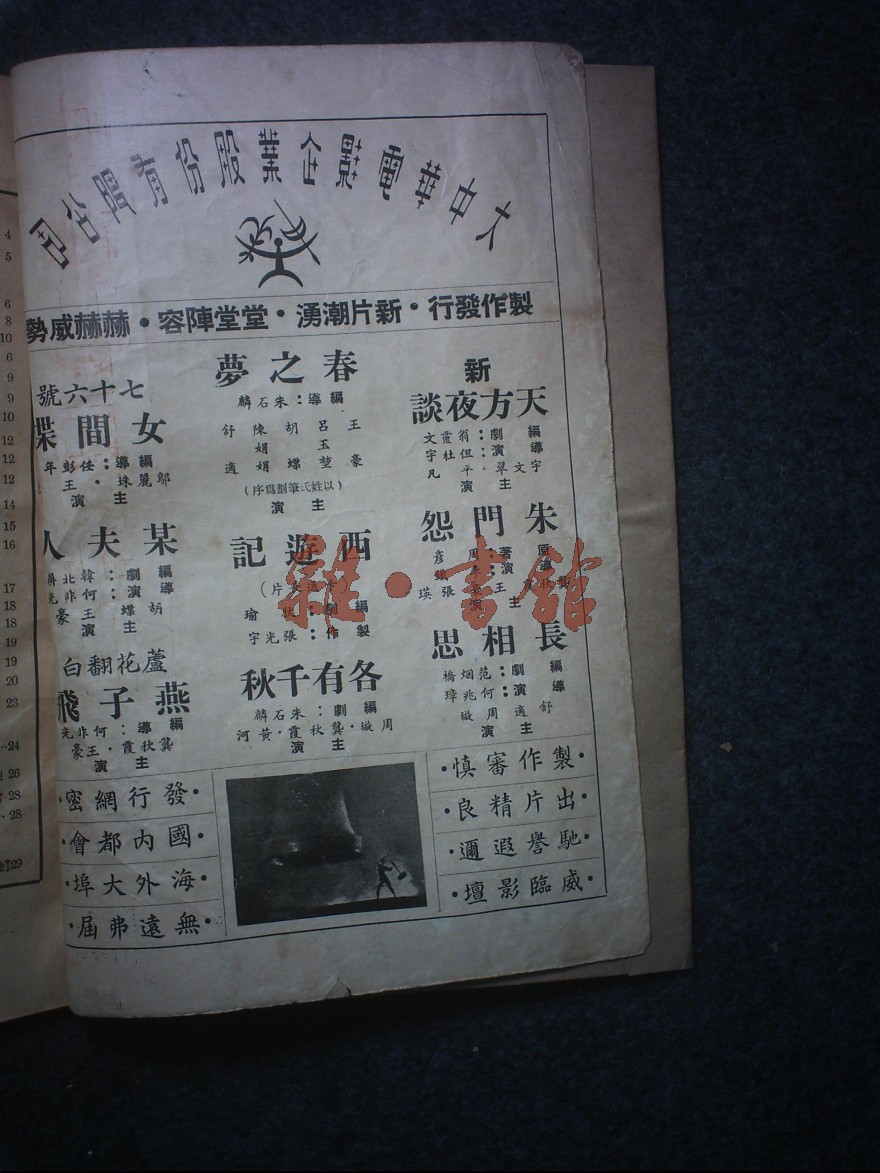 大中華電影企業股份有限公司
製作發行・新片潮湧・堂堂陣容・赫赫威勢
新
天方夜談
編劇：翁靈文
導演：但杜宇
主演
朱門怨
主演
長相思
編劇：范烟橋
導演：何兆璋
舒適 周璇
主演
春之夢
編導：朱石麟
王豪 呂玉堃 胡蝶 陳娟娟 舒適
（以姓氏筆劃爲序）
主演
西遊記
編劇
製作：張光宇
各有千秋
編劇：朱石麟
周璇・龔秋霞・黃河
主演
七十六號
女間諜
編導：任彭年
鄔麗珠・王
主演
某夫人
編劇：韓北屏
導演：何非光
胡蝶 王豪
主演
蘆花翻白
燕子飛
編導：何非光
龔秋霞・王豪
主演
・製作審慎・
・出片精良・
・馳譽遐邇・
・威臨影壇・
・發行網密・
・國內都會・
・海外大埠・
・無遠弗屆・
雜・書館
4
5
6
8
10
9
9
10
12
12
12
14
15
16
17
18
18
19
19
20
23
24
26
28
28
29